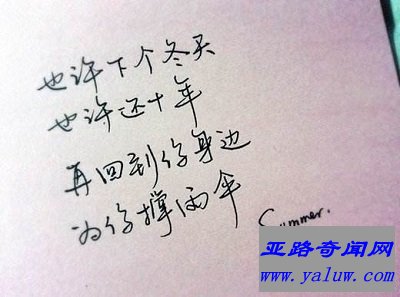 也许下个冬天
也许还十年
再回到你身边
为你撑雨伞
Summer.
亚路奇闻网
www.yaluw.com